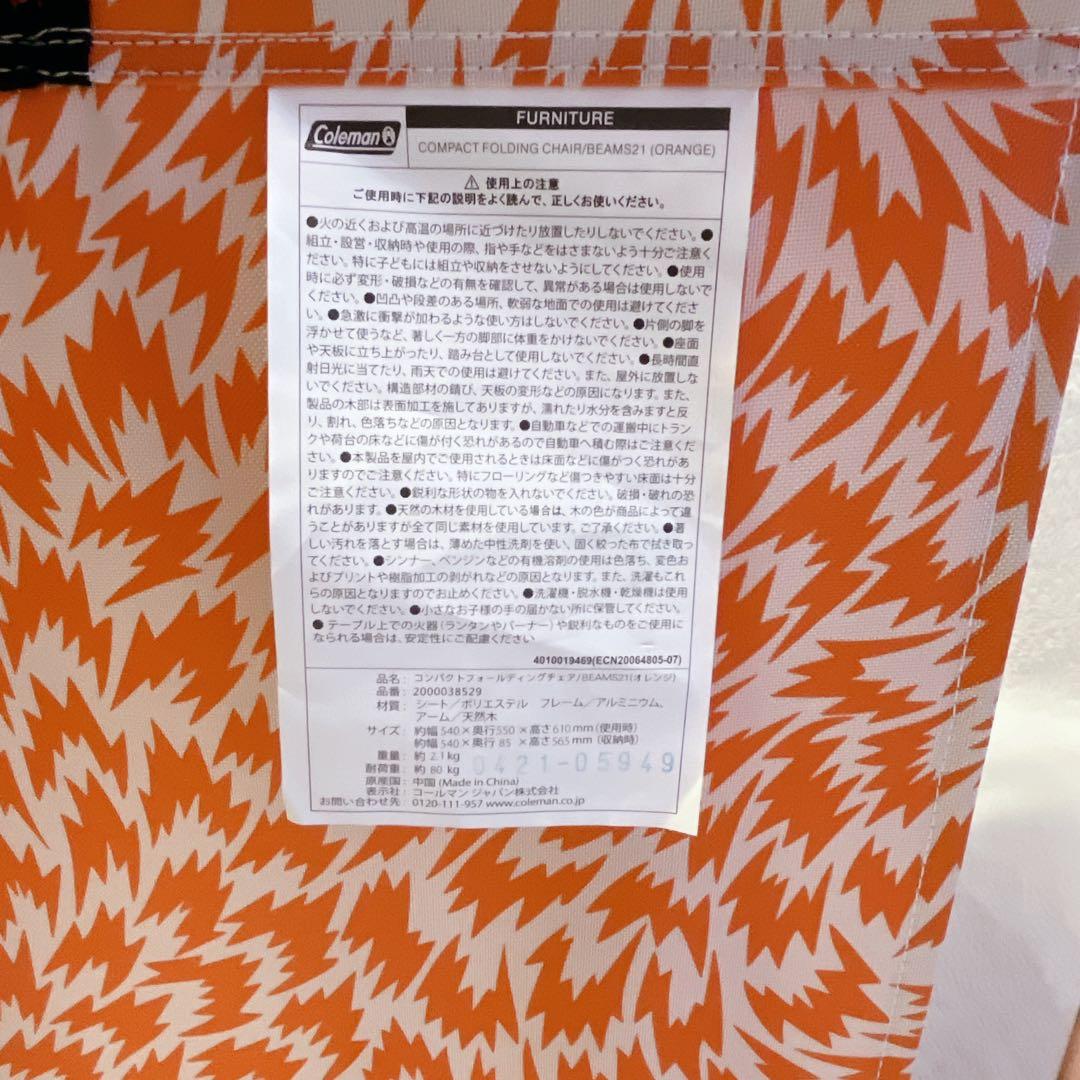 Coleman
FURNITURE
COMPACT FOLDING CHAIR/BEAMS21 (ORANGE)
⚠ 使用上の注意
ご使用時に下記の説明をよく読んで、正しくお使いください。
●火の近くおよび高温の場所に近づけたり放置したりしないでください。●
組立・設営・収納時や使用の際、指や手などをはさまないよう十分ご注意く
ださい。特に子どもには組立や収納をさせないようにしてください。●使用
時に必ず変形・破損などの有無を確認して、異常がある場合は使用しないで
ください。●凹凸や段差のある場所、軟弱な地面での使用は避けてくださ
い。●急激に衝撃が加わるような使い方はしないでください。●片側の脚を
浮かせて使うなど、著しく一方の脚部に体重をかけないでください。●座面
や天板に立ち上がったり、踏み台として使用しないでください。●長時間直
射日光に当てたり、雨天での使用は避けてください。また、屋外に放置しな
いでください。構造部材の錆び、天板の変形などの原因になります。また、
製品の木部は表面加工を施してありますが、濡れたり水分を含みますと反
り、割れ、色落ちなどの原因となります。●自動車などでの運搬中にトラン
クや荷台の床などに傷が付く恐れがあるので自動車へ積む際はご注意くだ
さい。●本製品を屋内でご使用されるときは床面などに傷がつく恐れがあ
りますのでご注意ください。特にフローリングなど傷つきやすい床面は十分
ご注意ください。●鋭利な形状の物を入れないでください。破損・破れの恐
れがあります。●天然の木材を使用している場合は、木の色が商品によって違
うことがありますが全て同じ素材を使用しています。ご了承ください。●著
しい汚れを落とす場合は、薄めた中性洗剤を使い、固く絞った布で拭き取っ
てください。●シンナー、ベンジンなどの有機溶剤の使用は色落ち、変色お
よびプリントや樹脂加工の剥がれなどの原因となります。また、洗濯もこれ
らの原因となりますのでおやめください。●洗濯機・脱水機・乾燥機は使用
しないでください。●小さなお子様の手の届かない所に保管してください。
●テーブル上での火器(ランタンやバーナー)や鋭利なものをご使用に
なられる場合は、安定性にご配慮ください。
4010019469(ECN20064805-07)
品名: コンパクトフォールディングチェア/BEAMS21(オレンジ)
品番: 2000038529
材質: シート/ポリエステル フレーム/アルミニウム、
アーム/天然木
サイズ: 約幅540×奥行550×高さ610mm(使用時)
約幅540×奥行 85×高さ565mm(収納時)
重量: 約 2.1kg
耐荷重: 約 80kg
0421-05949
原産国: 中国 (Made in China)
表示社: コールマン ジャパン株式会社
お問い合わせ先: 0120-111-957 www.coleman.co.jp